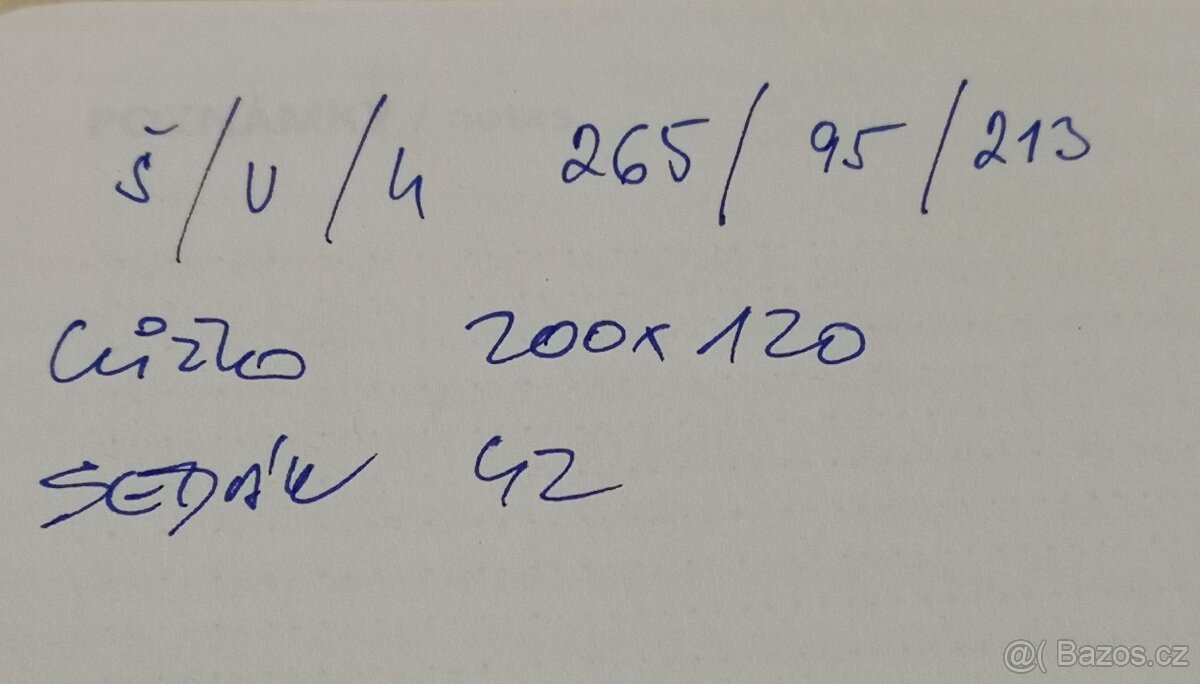 Š/V/H 265/95/213
lůžko 200x120
SEDÁK 42
@( Bazos.cz